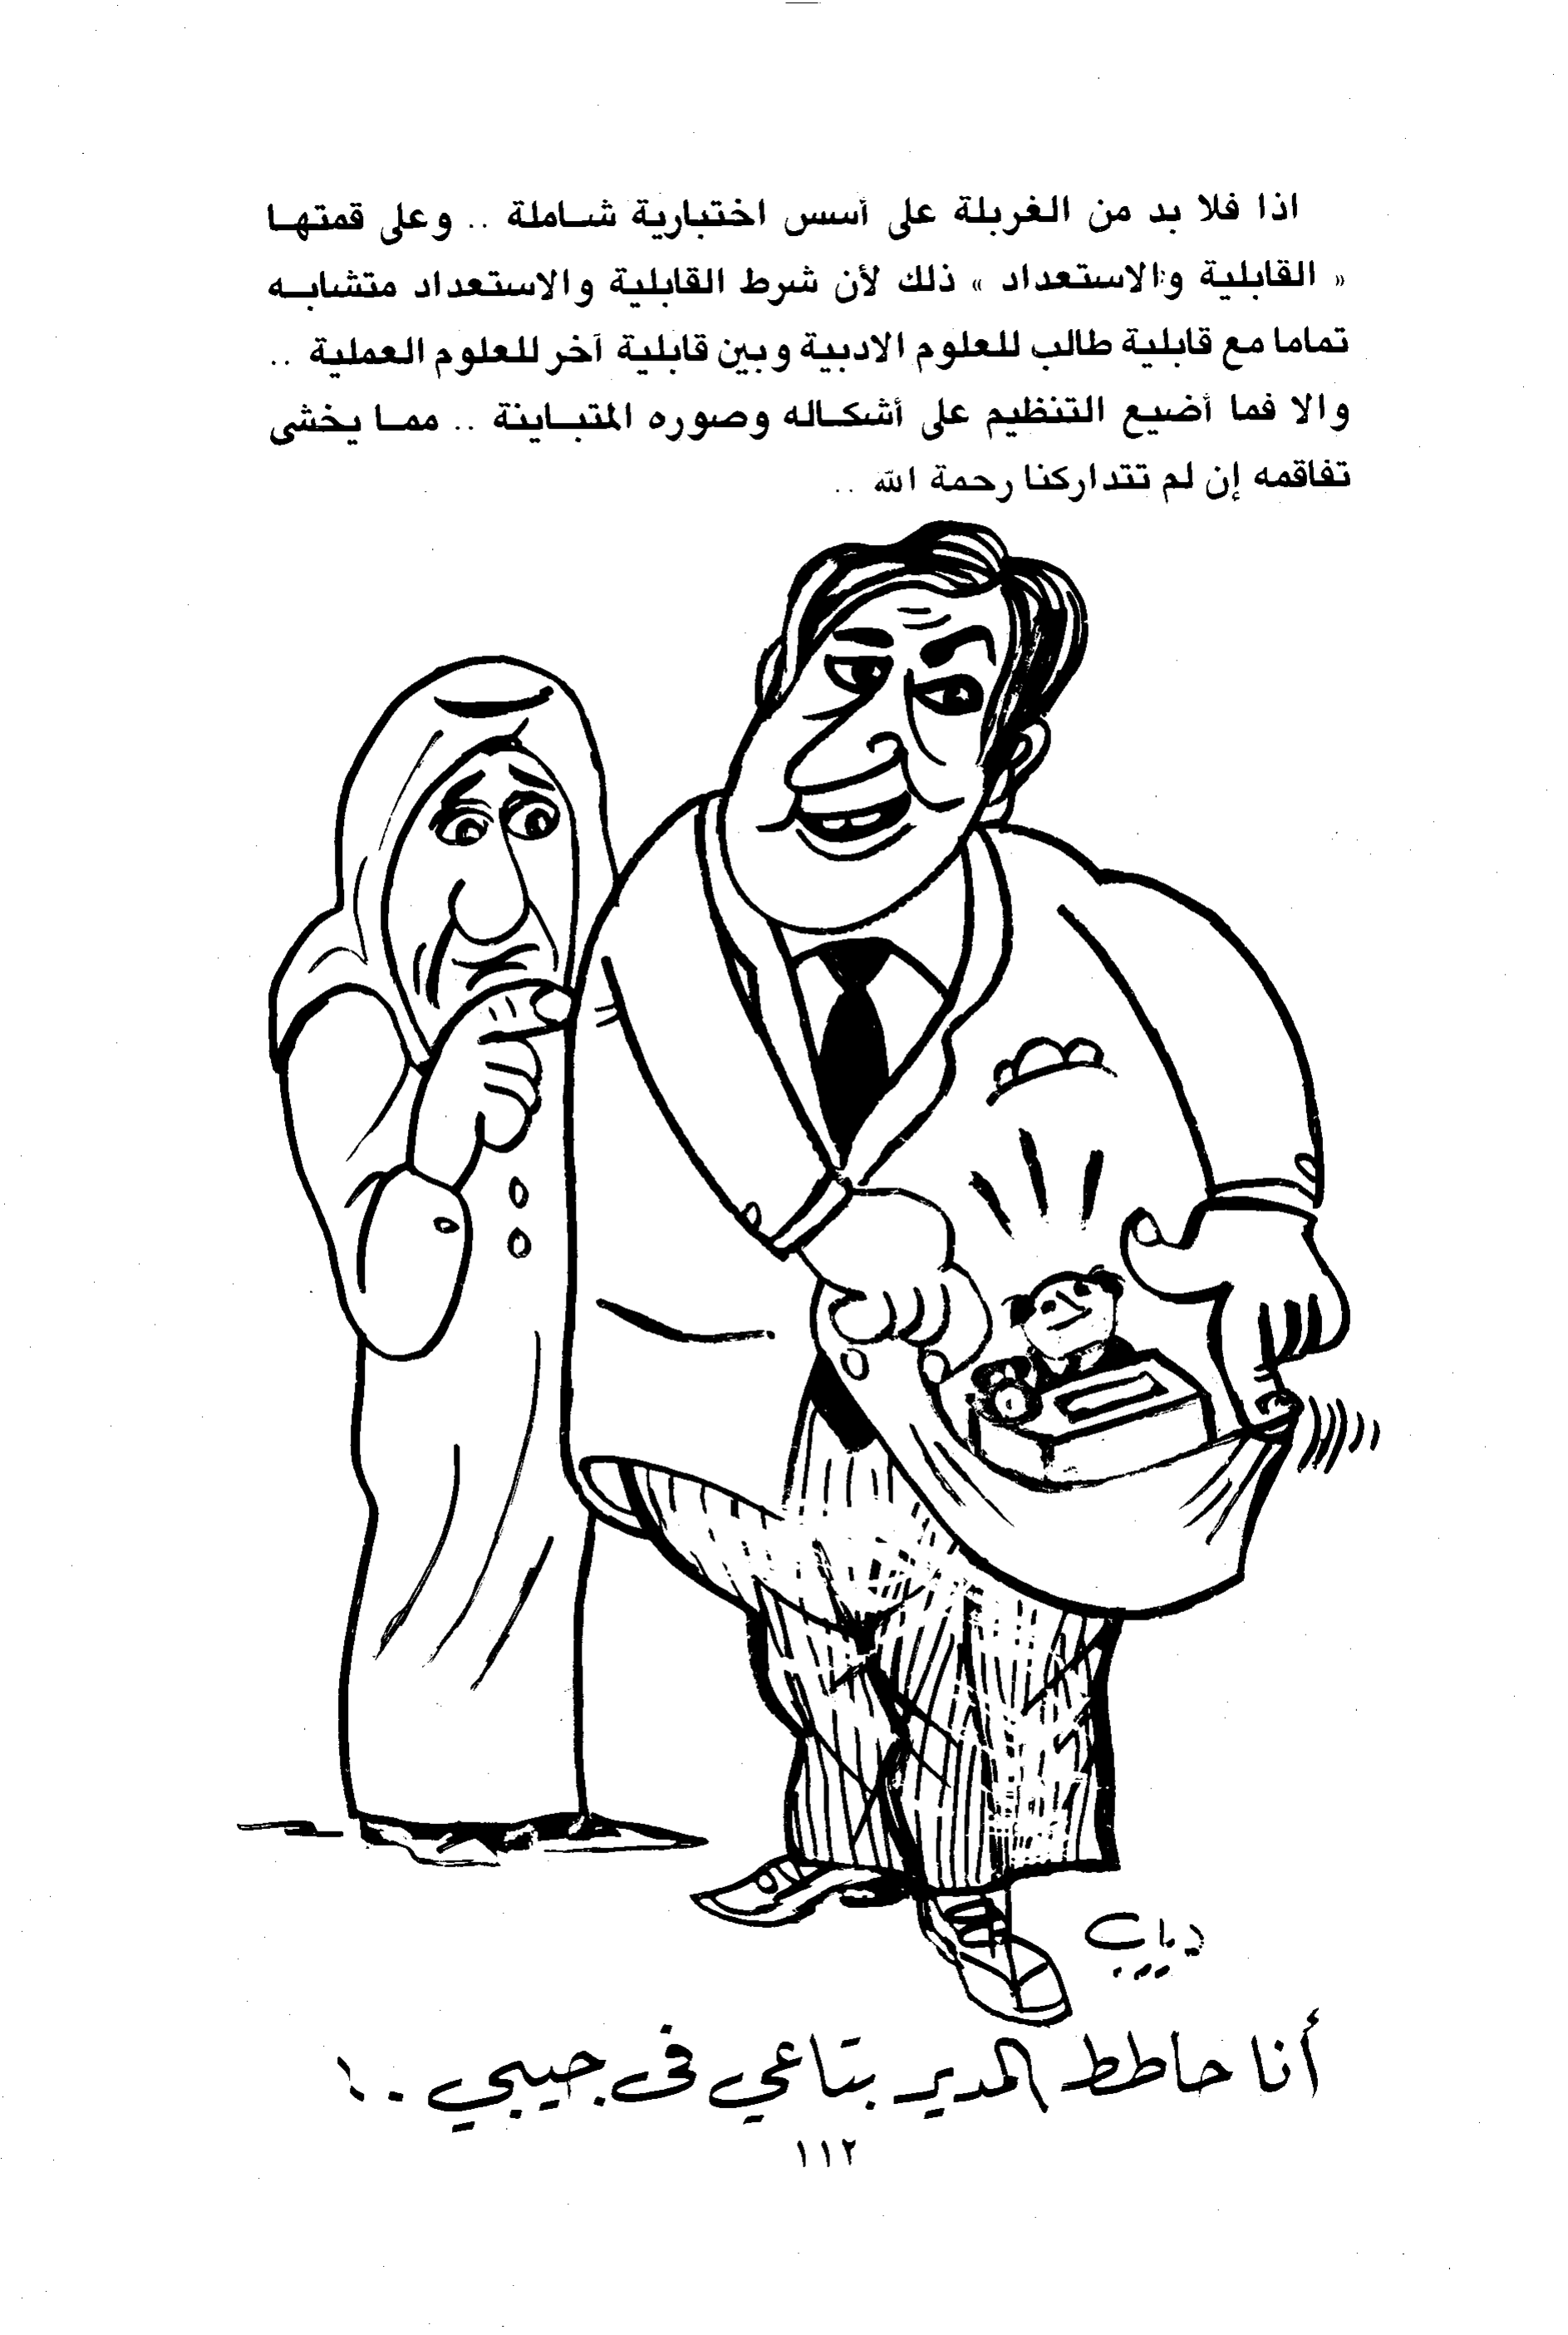 اذا فلا بد من الغربلة على أسس اختبارية شـاملة .. وعلى قمتهـا
« القابلية والاستعداد » ذلك لأن شرط القابلية والاستعداد متشابـه
تماما مع قابلية طالب للعلوم الادبية وبين قابلية آخر للعلوم العملية ..
والا فما أضيع التنظيم على أشكـاله وصوره المتبـاينة .. ممـا يخشى
تفاقمه إن لم تتداركنا رحمة الله ..
دياب
أنا حاطط المدير بتاعي فى جيبي ..!
١١٢